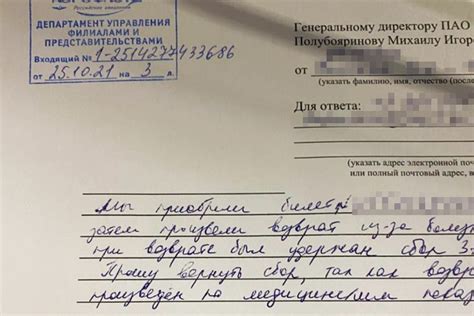 АЭРОФЛОТ
Российские авиалинии
ДЕПАРТАМЕНТ УПРАВЛЕНИЯ
ФИЛИАЛАМИ И
ПРЕДСТАВИТЕЛЬСТВАМИ
Входящий № 1-2514277433686
от 25.10.21 на 3 л.
Генеральному директору ПАО
Полубояринову Михаилу Игор
от
(указать фамилию, имя, отчество (посл
Для ответа:
(указать адрес электронной почт
или полный почтовый адрес, ес
Мы приобрели билет
затем произвели возврат из-за болез
при возврате был удержан сбор 3
Прошу вернуть сбор, так как возвра
произведён по медицинским показ